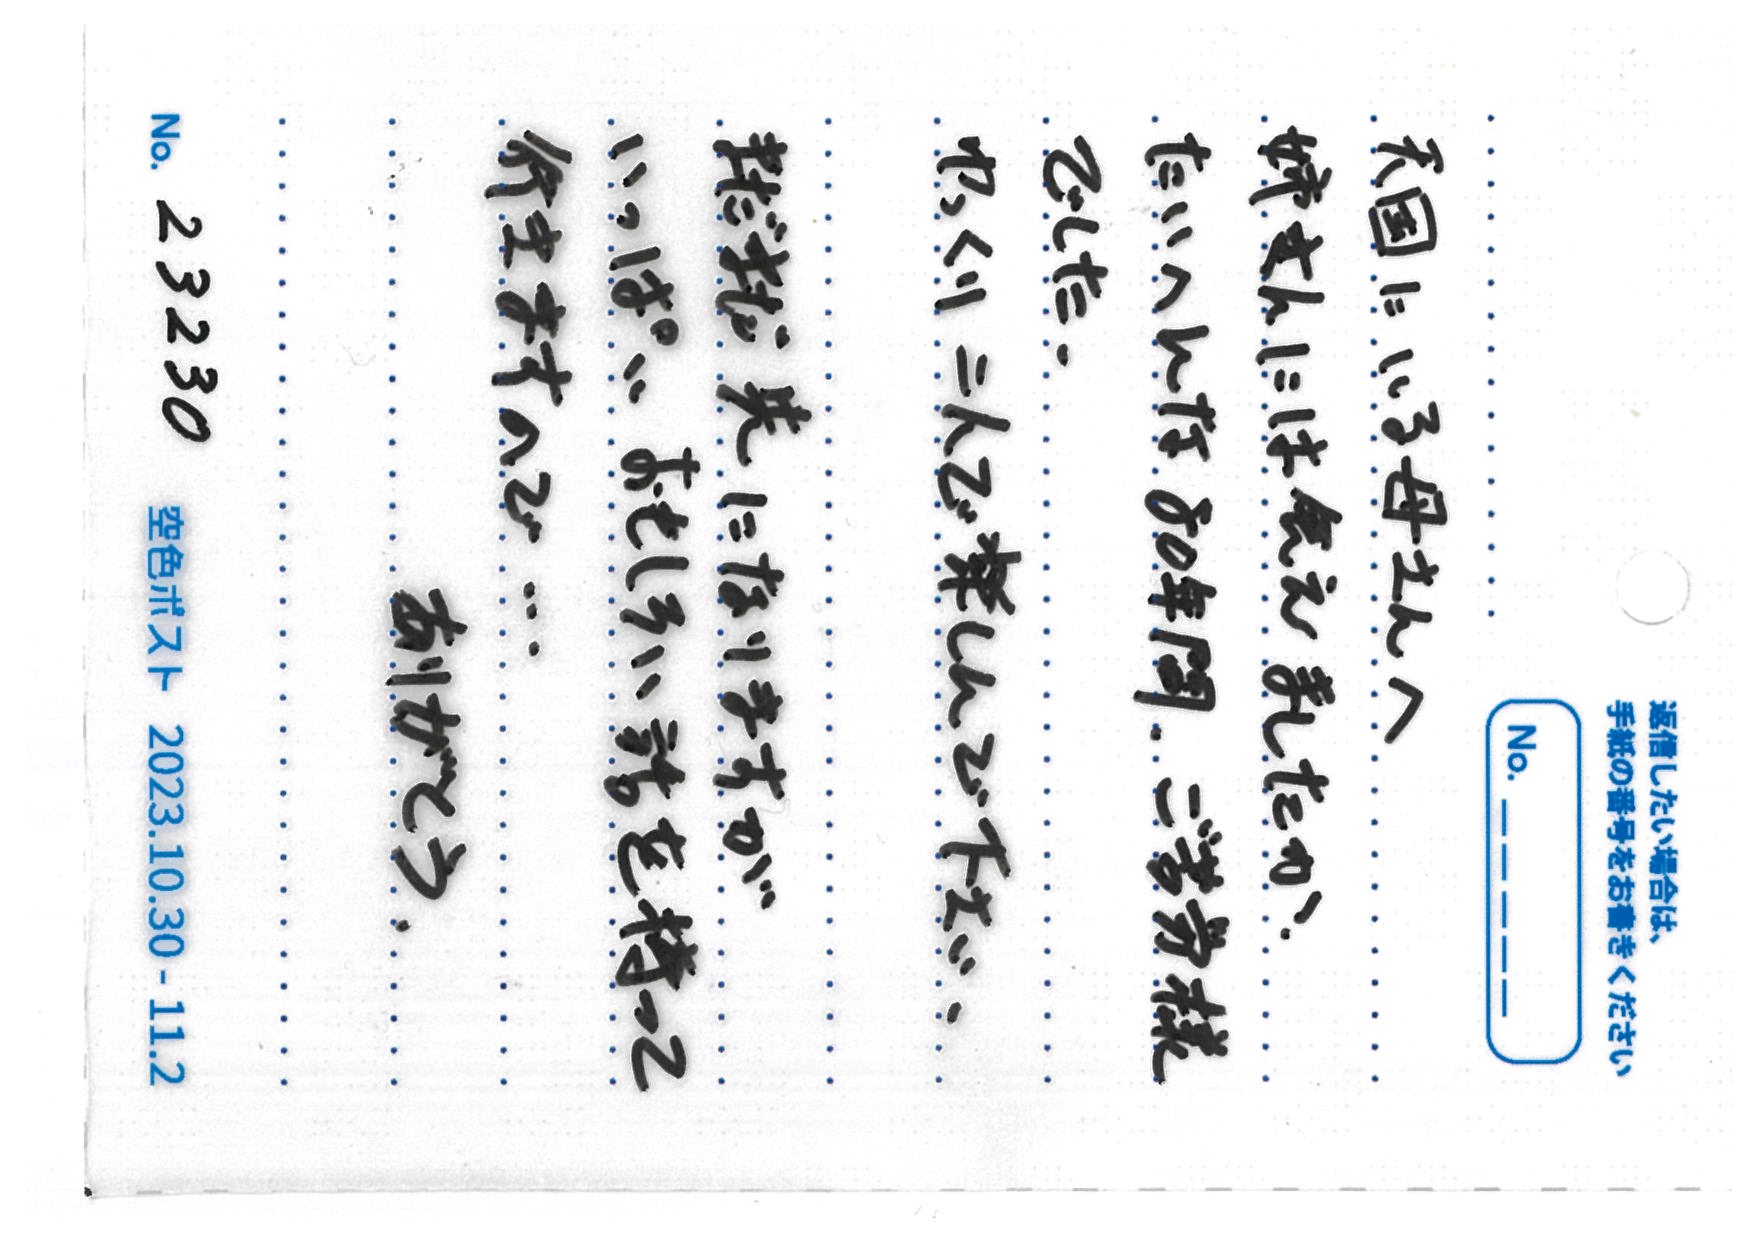 返信したい場合は、
手紙の番号をお書きください
No. _ _ _ _ _
天国にいる母さんへ
姉さんには会えましたか、
たいへんな80年間。ご苦労様
でした。
ゆっくり二人で楽しんで下さい、
まだまだ先になりますが
いっぱい おもしろい話を持って
行きますので…
ありがとう。
No. 23230 空色ポスト 2023.10.30 - 11.2